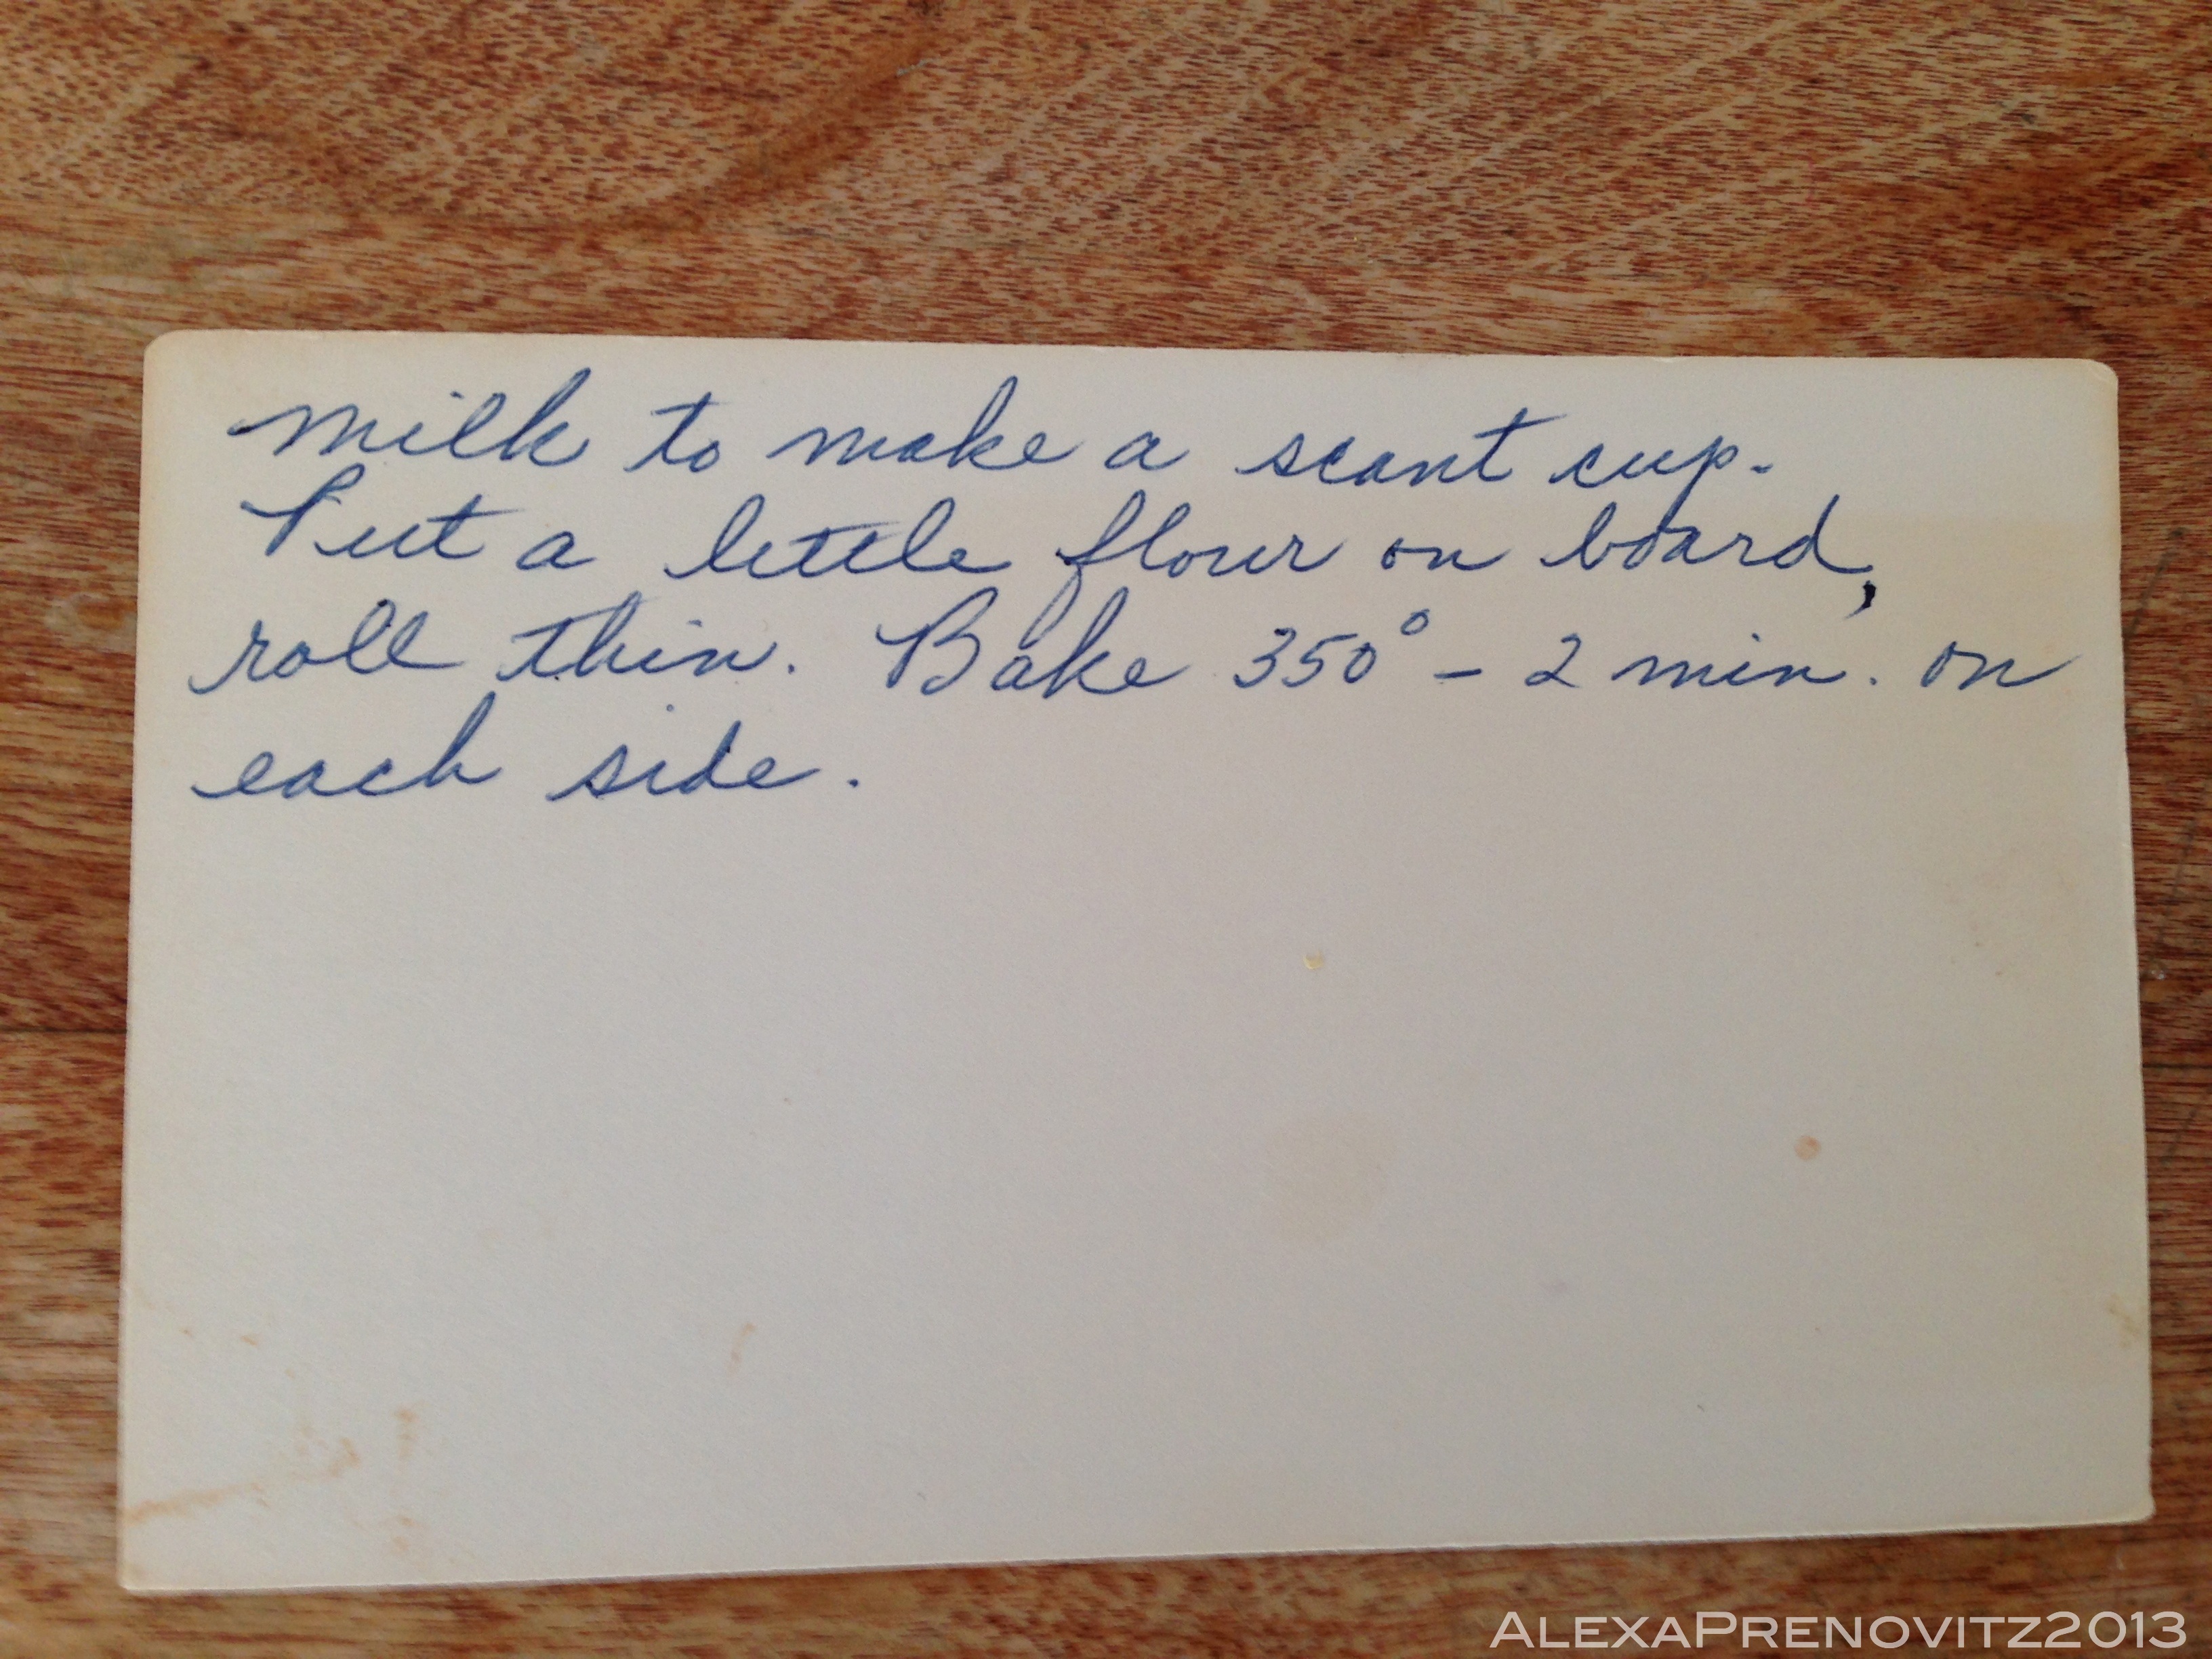 milk to make a scant cup.
Put a little flour on board,
roll thin. Bake 350° - 2 min. on
each side.
ALEXAPRENOVITZ2013